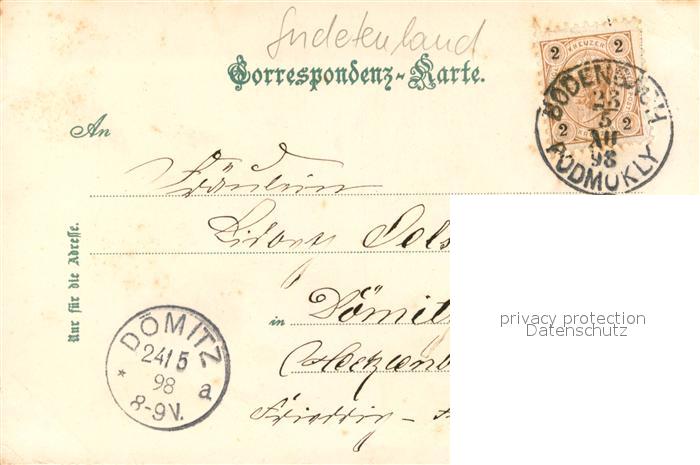 Sudetenland
Correspondenz-Karte.
2 KREUZER 2
2 2
BODENBACH
23
5
XII
98
PODMOKLY
An
Fräulein
Nur für die Adresse.
in Dömitz
DÖMITZ
24/5
98
* a
8-9V.
privacy protection
Datenschutz